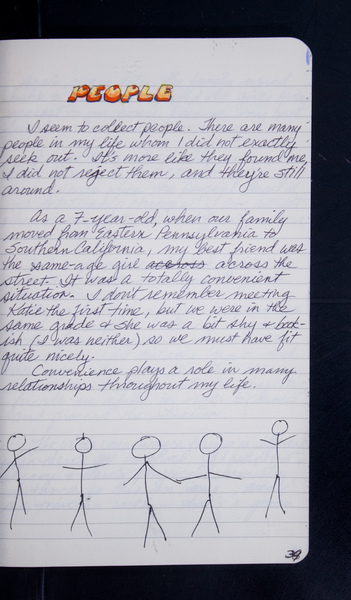 PEOPLE
I seem to collect people. There are many
people in my life whom I did not exactly
seek out. It's more like they found me,
I did not reject them, and they're still
around.
As a 7-year-old, when our family
moved from Eastern Pennsylvania to
Southern California, my best friend was
the same-age girl across across the
street. It was a totally convenient
situation. I don't remember meeting
Katie the first time, but we were in the
same grade & she was a bit shy & book-
ish (I was neither) so we must have fit
quite nicely.
Convenience plays a role in many
relationships throughout my life.
39